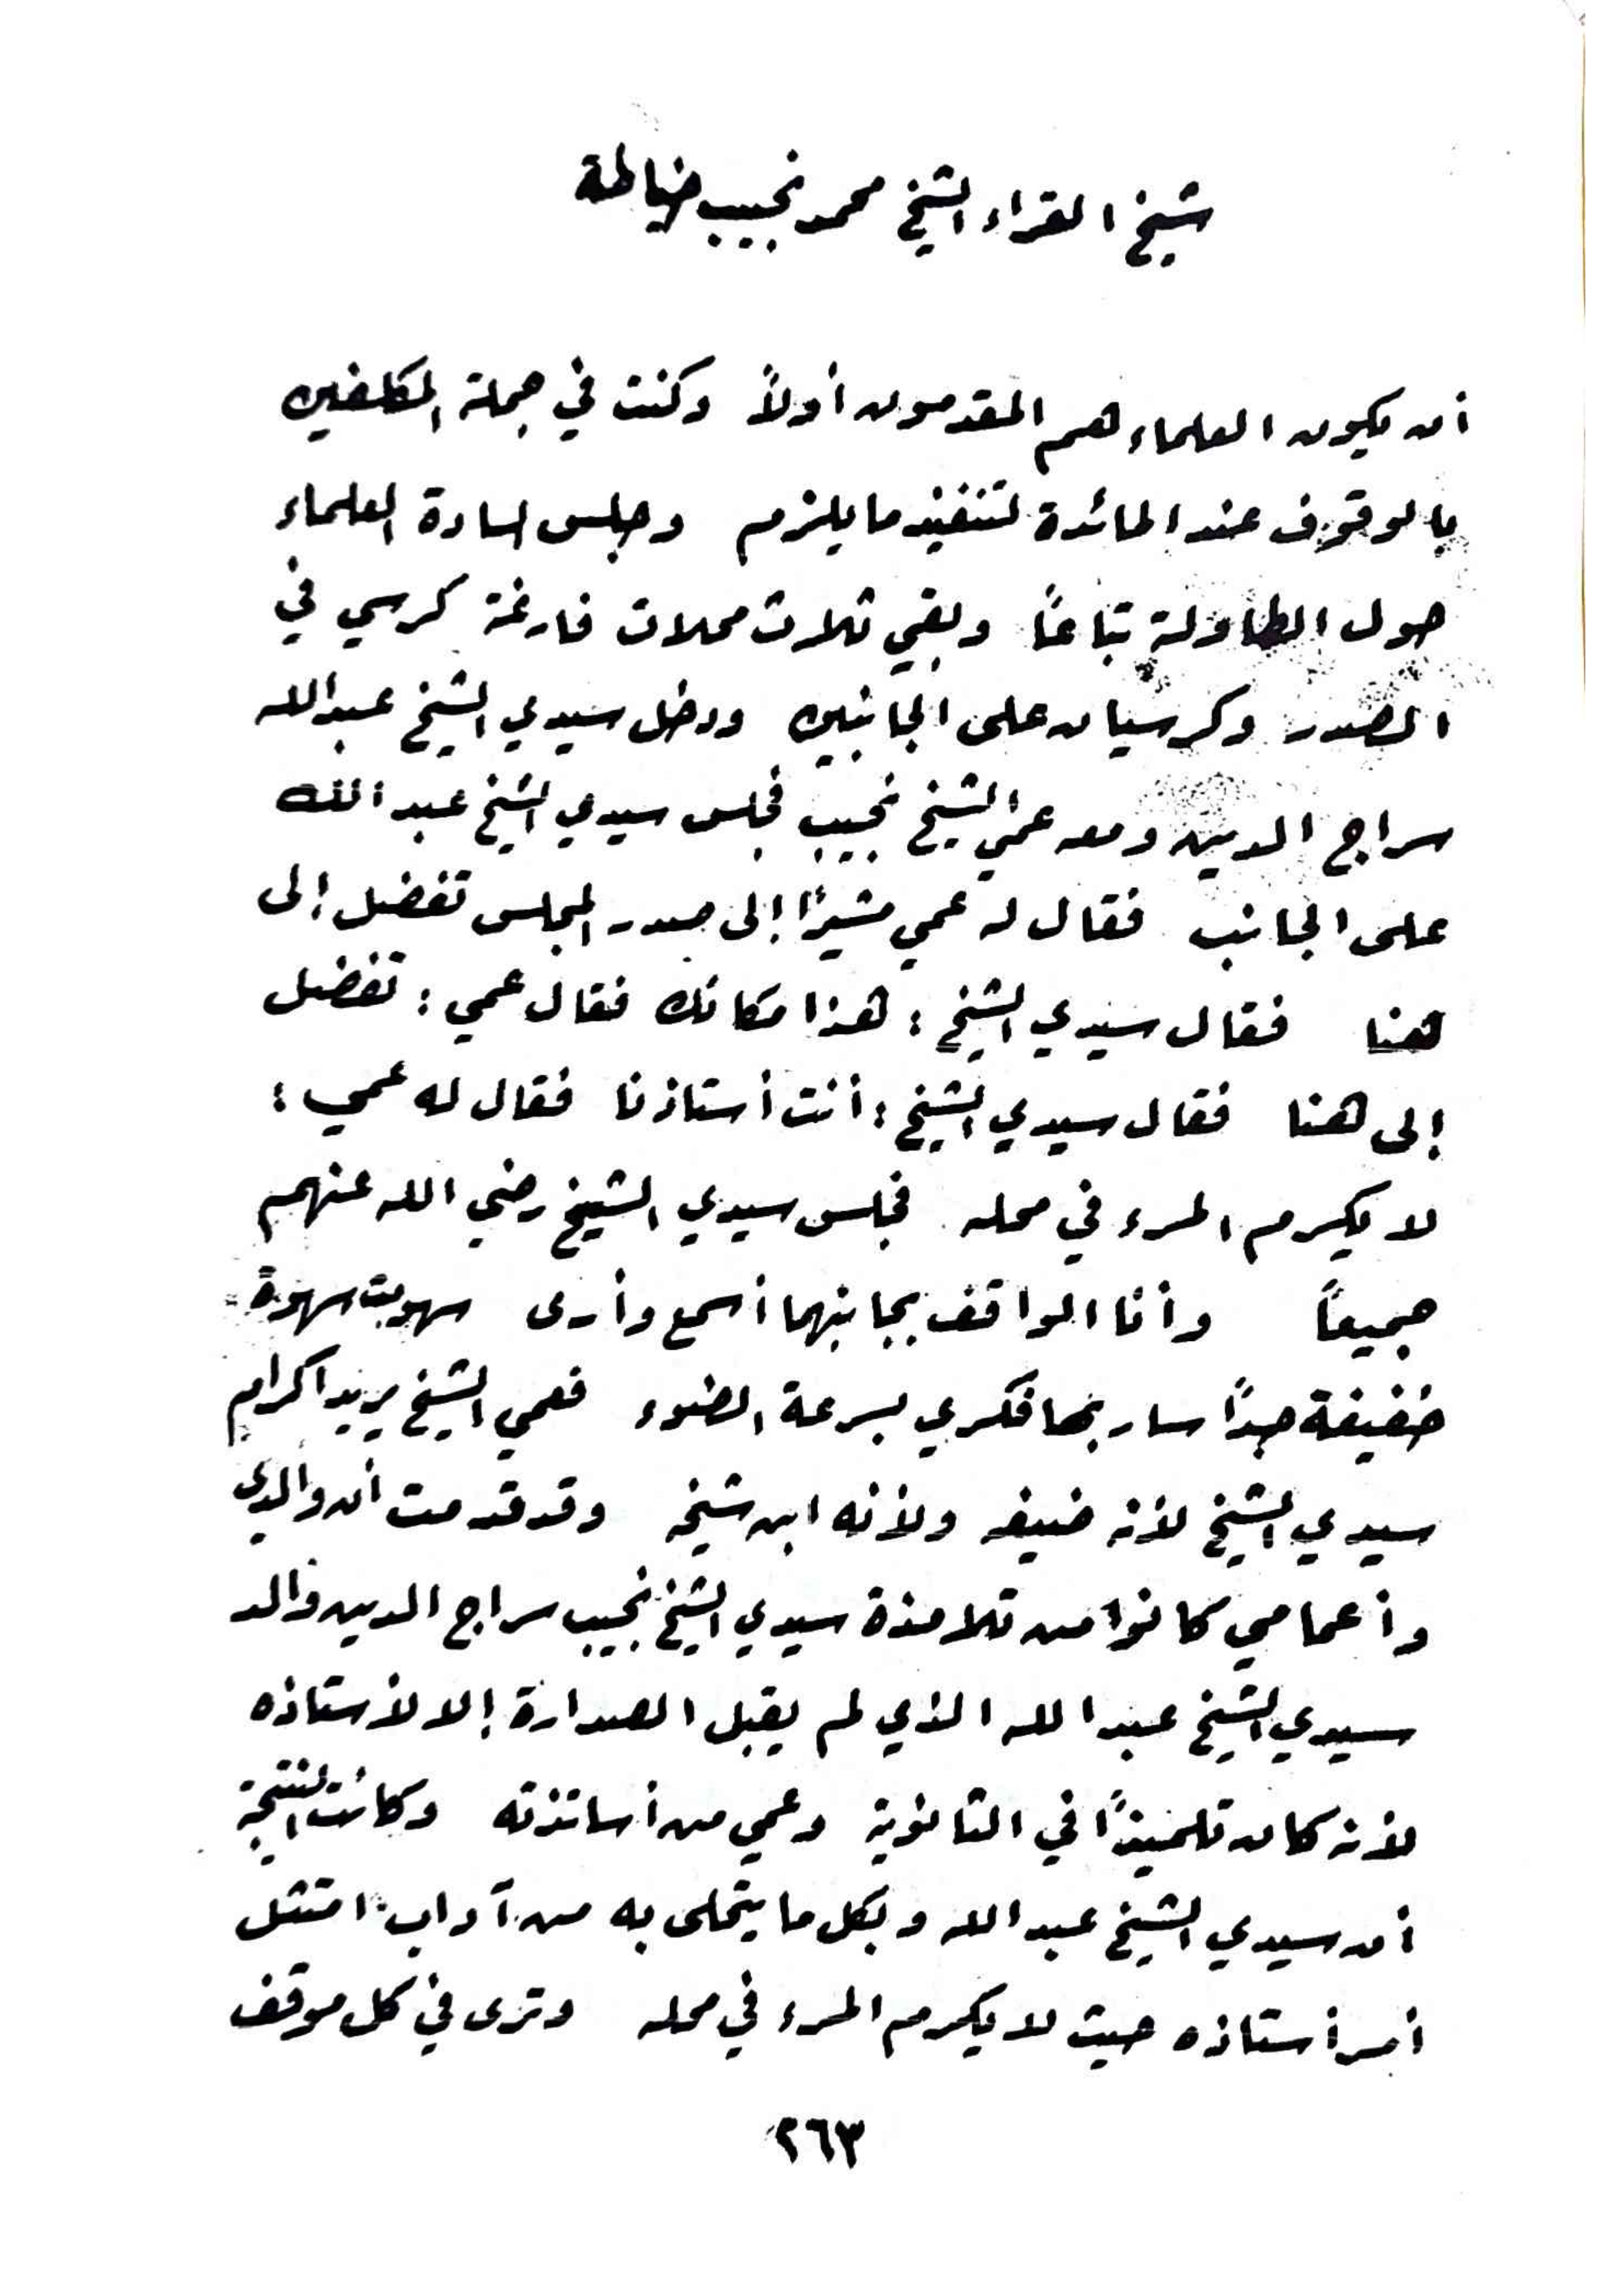 شيخ القراء الشيخ محمد نجيب خياطة
أن يكون العلماء هم المقدمون أولاً وكنت في جملة المكلفين
بالوقوف عند المائدة لتنفيذ ما يلزم وجلس السادة العلماء
حول الطاولة تباعاً وبقي ثلاث محلات فارغة كرسي في
الصدر وكرسيان على الجانبين ودخل سيدي الشيخ عبدالله
سراج الدين ومعه عمي الشيخ نجيب فجلس سيدي الشيخ عبدالله
على الجانب فقال له عمي مشيرًا إلى صدر المجلس تفضل إلى
هنا فقال سيدي الشيخ : هذا مكانك فقال عمي : تفضل
إلى هنا فقال سيدي الشيخ : أنت أستاذنا فقال له عمي :
لا يكرم المرء في محله فجلس سيدي الشيخ رضي الله عنهم
جميعاً وأنا الواقف بجانبهما أسمع وأرى سهوت سهوةً
خفيفة جداً سار بها فكري بسرعة الضوء فعمي الشيخ يريد اكرام
سيدي الشيخ لأنه ضيفه ولأنه ابن شيخه وقد قدمت أن والدي
وأعمامي كانوا من تلامذة سيدي الشيخ نجيب سراج الدين والد
سيدي الشيخ عبدالله الذي لم يقبل الصدارة إلا لأستاذه
لأنه كان تلميذاً في الثانوية وعمي من أساتذته وكانت النتيجة
أن سيدي الشيخ عبدالله وبكل ما يتحلى به من آداب امتثل
أمر أستاذه حيث لا يكرم المرء في محله وترى في كل موقف
٢٦٣